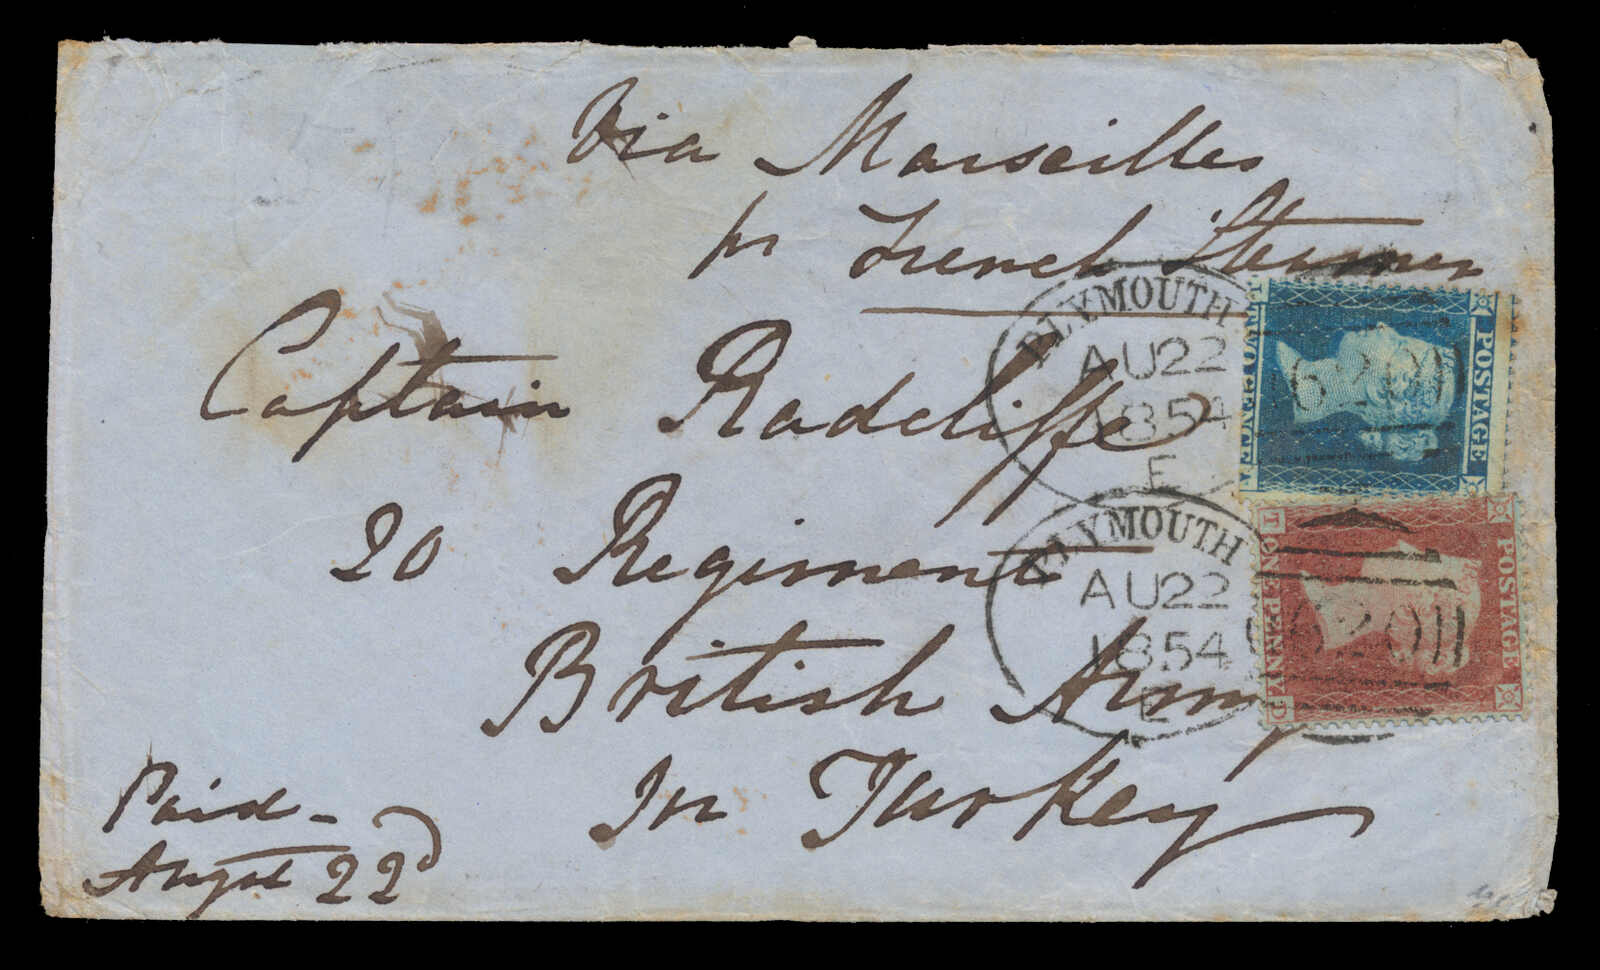 Via Marseilles
pr French Steamer
Captain Radcliffe
20 Regiment
British Army
In Turkey
Paid -
Augst 22d
PLYMOUTH
AU22
1854
E
PLYMOUTH
AU22
1854
E
POSTAGE
TWO PENCE
620
POSTAGE
T ONE PENNY D
620